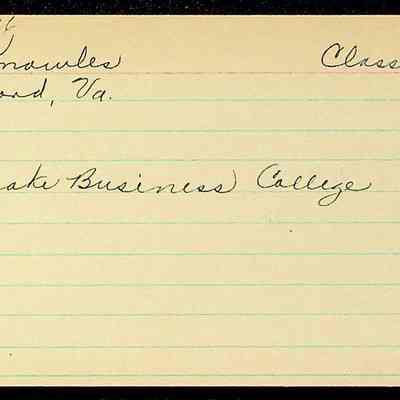 Knowles Class
ord, Va.
oake Business College